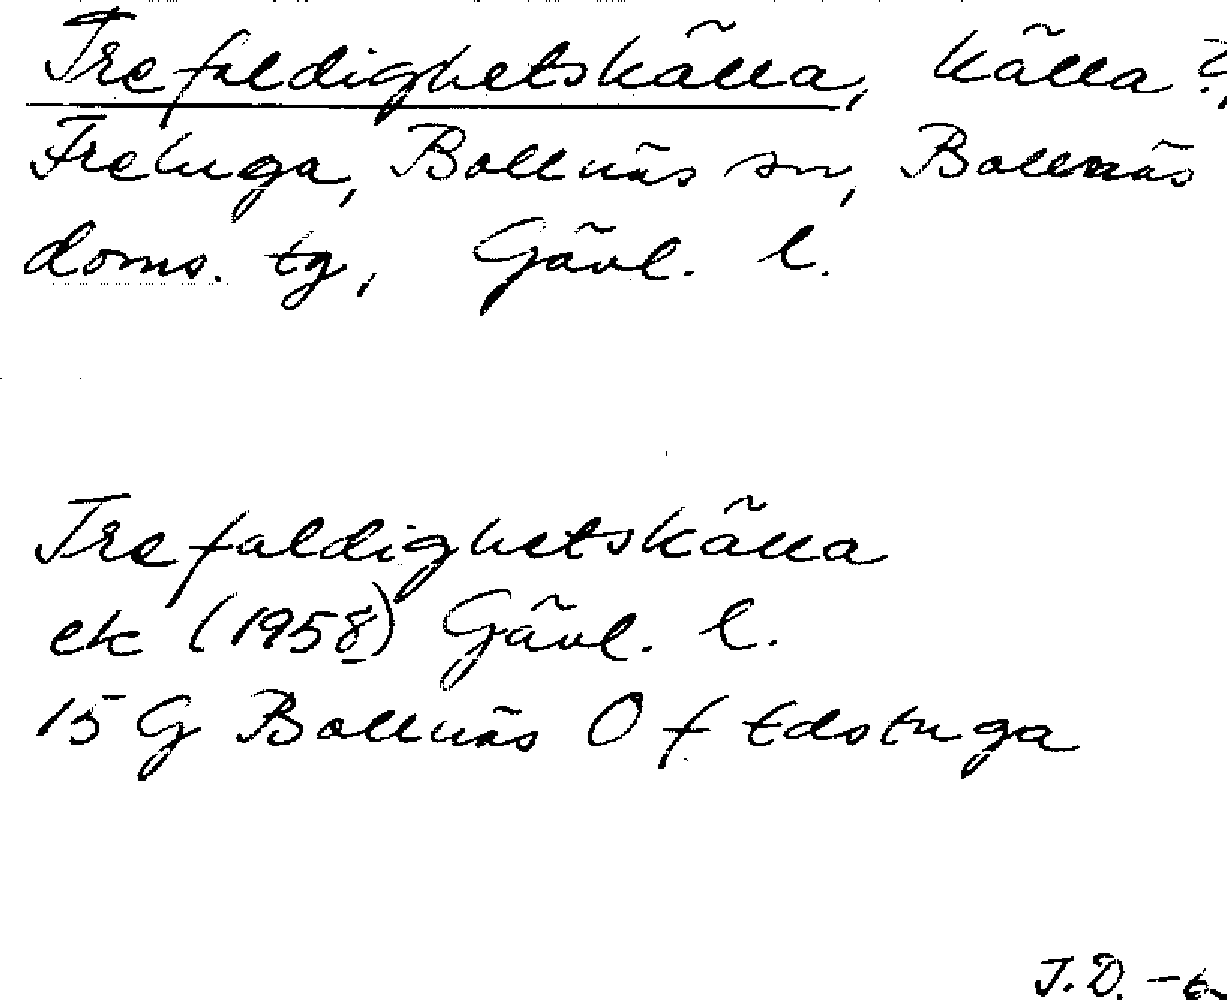 Trefaldighetskälla, källa?,
Freluga, Bollnäs sn, Bollnäs
doms. tg, Gävl. l.
Trefaldighetskälla
ek (1958) Gävl. l.
15 G Bollnäs O f Edstuga
J.D. -6